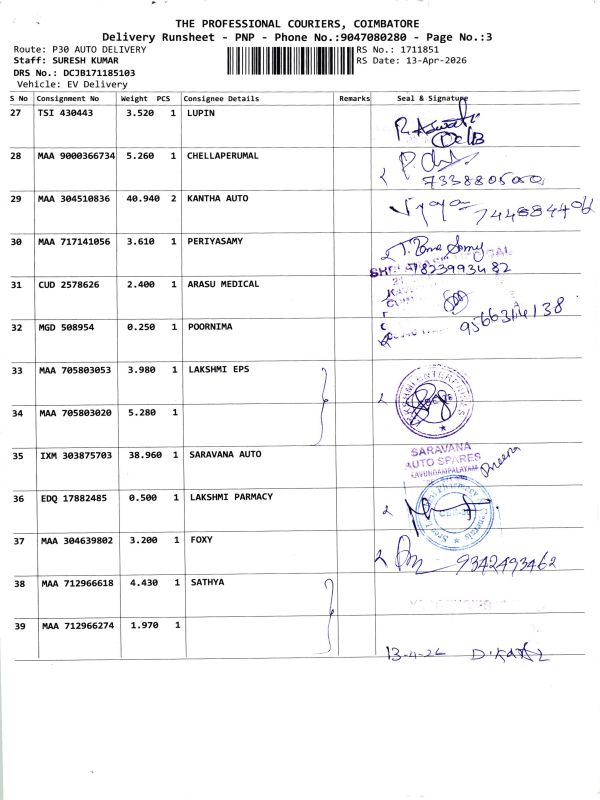 THE PROFESSIONAL COURIERS, COIMBATORE
Delivery Runsheet - PNP - Phone No.:9047080280 - Page No.:3
Route: P30 AUTO DELIVERY
RS No.: 1711851
Staff: SURESH KUMAR
RS Date: 13-Apr-2026
DRS No.: DCJB171185103
Vehicle: EV Delivery
S No Consignment No Weight PCS Consignee Details Remarks Seal & Signature
27 TSI 430443 3.520 1 LUPIN
28 MAA 9000366734 5.260 1 CHELLAPERUMAL
29 MAA 304510836 40.940 2 KANTHA AUTO
30 MAA 717141056 3.610 1 PERIYASAMY
31 CUD 2578626 2.400 1 ARASU MEDICAL
32 MGD 508954 0.250 1 POORNIMA
33 MAA 705803053 3.980 1 LAKSHMI EPS
34 MAA 705803020 5.280 1
35 IXM 303875703 38.960 1 SARAVANA AUTO
SARAVANA
AUTO SPARES
KAVUNDAMPALAYAM
36 EDQ 17882485 0.500 1 LAKSHMI PARMACY
37 MAA 304639802 3.200 1 FOXY
9342493462
38 MAA 712966618 4.430 1 SATHYA
39 MAA 712966274 1.970 1